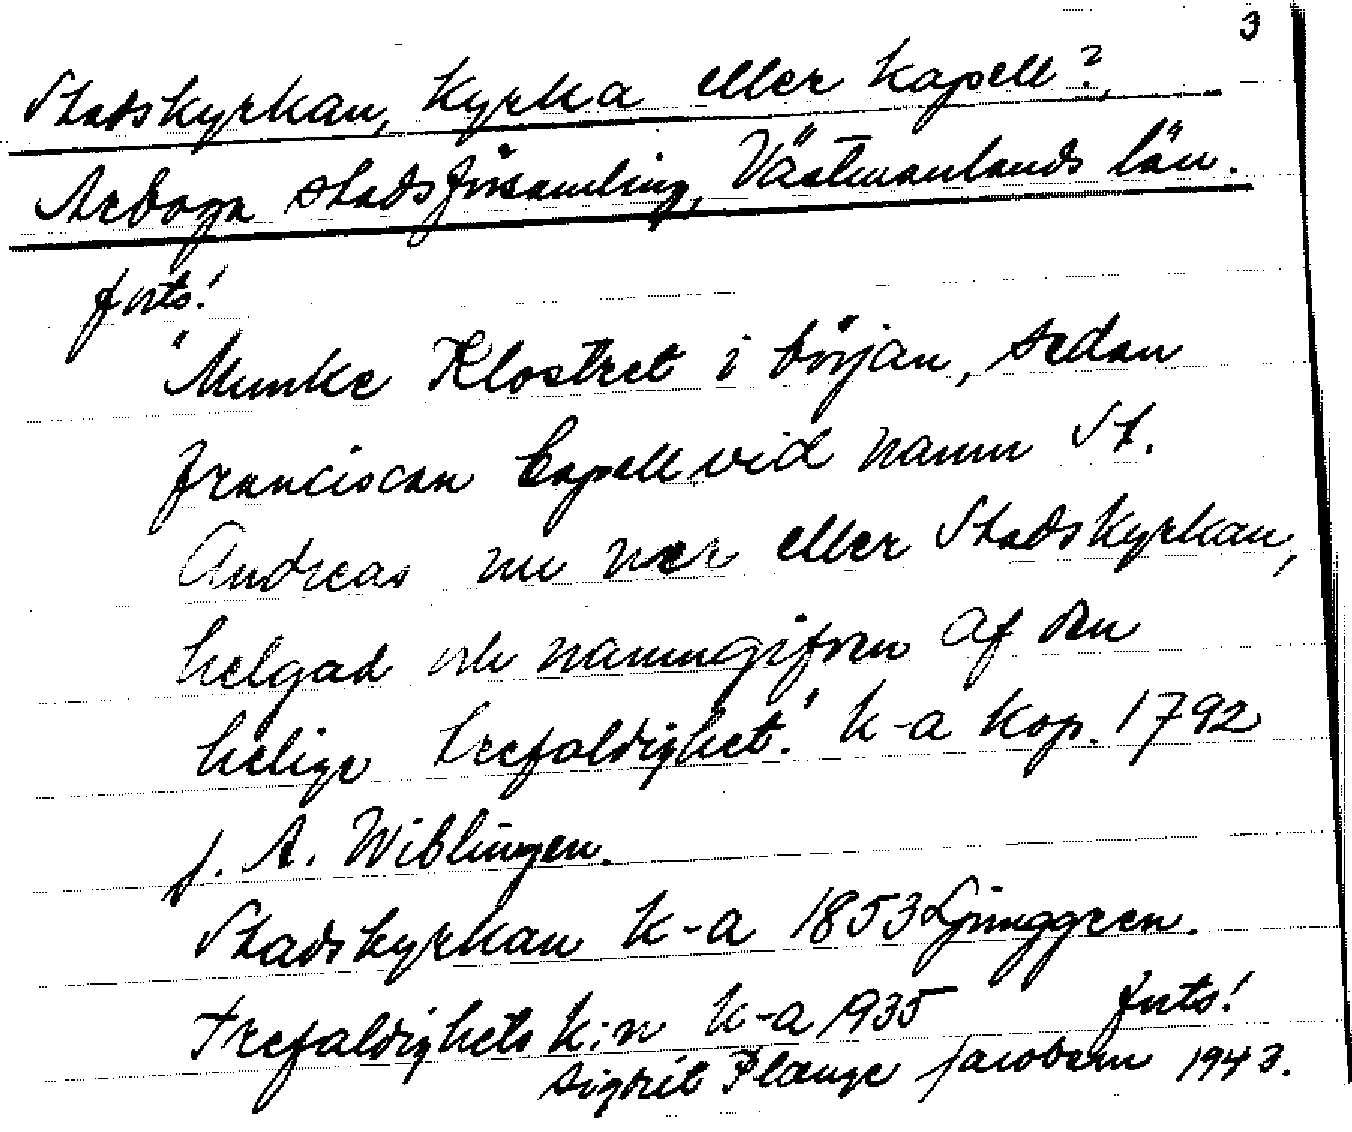 3
Stadskyrkan, Kyrka eller kapell?,
Arboga stadsförsamling, Västmanlands län.
forts!
"Munke Klostret i början, sedan
franciscan Capell vid namn St.
Andreas nu ner eller Stadskyrkan,
helgad och namngifven af den
helige trefaldighet." k-a kop. 1792
f. A. Wiblingen.
Stadskyrkan k-a 1853 Ljunggren.
Trefaldighets k:n k-a 1935 forts!
Sigrid Plange Jacobson 1943.